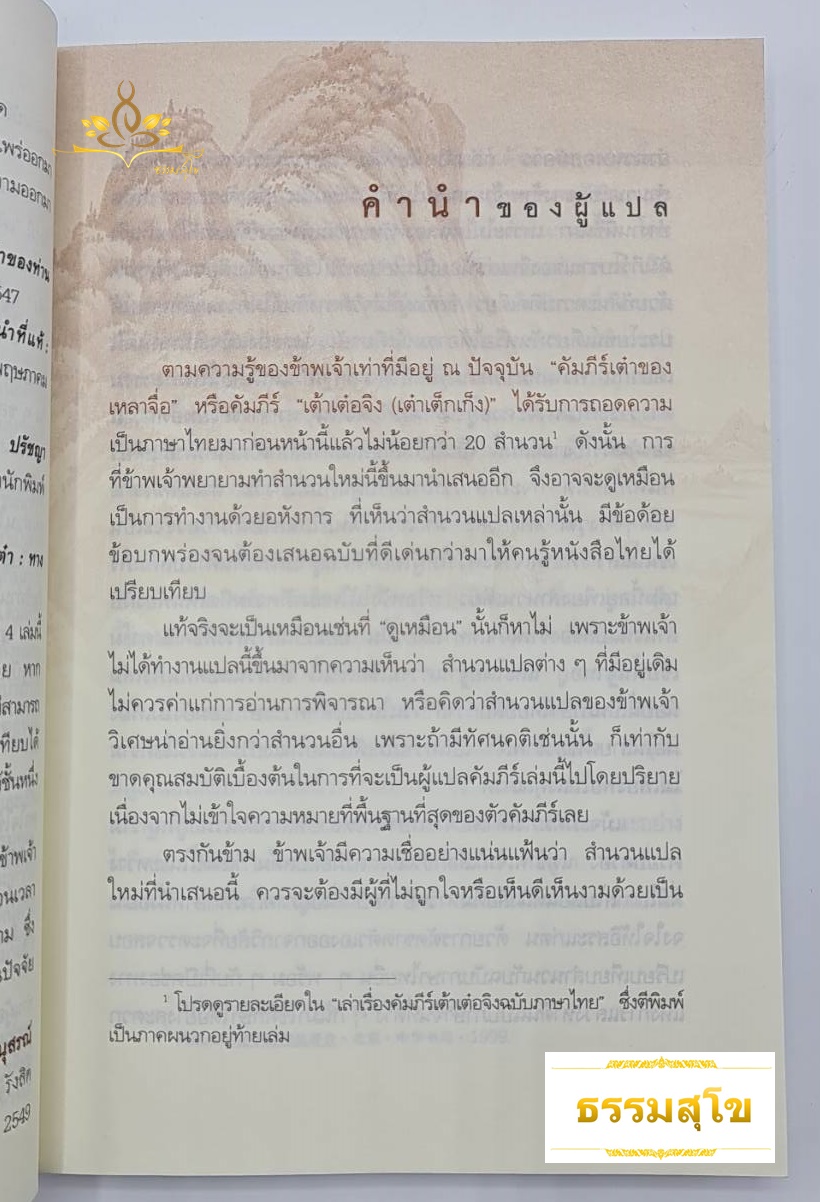 พฤษภาคม
ปรัชญา
4 เล่มนี้
หาก
รังสิต
2549
คำนำของผู้แปล
ตามความรู้ของข้าพเจ้าเท่าที่มีอยู่ ณ ปัจจุบัน “คัมภีร์เต๋าของ
เหลาจื่อ” หรือคัมภีร์ “เต้าเต๋อจิง (เต๋าเต็กเก็ง)” ได้รับการถอดความ
เป็นภาษาไทยมาก่อนหน้านี้แล้วไม่น้อยกว่า 20 สำนวน¹ ดังนั้น การ
ที่ข้าพเจ้าพยายามทำสำนวนใหม่นี้ขึ้นมานำเสนออีก จึงอาจจะดูเหมือน
เป็นการทำงานด้วยอหังการ ที่เห็นว่าสำนวนแปลเหล่านั้น มีข้อด้อย
ข้อบกพร่องจนต้องเสนอฉบับที่ดีเด่นกว่ามาให้คนรู้หนังสือไทยได้
เปรียบเทียบ
แท้จริงจะเป็นเหมือนเช่นที่ “ดูเหมือน” นั้นก็หาไม่ เพราะข้าพเจ้า
ไม่ได้ทำงานแปลนี้ขึ้นมาจากความเห็นว่า สำนวนแปลต่าง ๆ ที่มีอยู่เดิม
ไม่ควรค่าแก่การอ่านการพิจารณา หรือคิดว่าสำนวนแปลของข้าพเจ้า
วิเศษน่าอ่านยิ่งกว่าสำนวนอื่น เพราะถ้ามีทัศนคติเช่นนั้น ก็เท่ากับ
ขาดคุณสมบัติเบื้องต้นในการที่จะเป็นผู้แปลคัมภีร์เล่มนี้ไปโดยปริยาย
เนื่องจากไม่เข้าใจความหมายที่พื้นฐานที่สุดของตัวคัมภีร์เลย
ตรงกันข้าม ข้าพเจ้ามีความเชื่ออย่างแน่นแฟ้นว่า สำนวนแปล
ใหม่ที่นำเสนอนี้ ควรจะต้องมีผู้ที่ไม่ถูกใจหรือเห็นดีเห็นงามด้วยเป็น
¹ โปรดดูรายละเอียดใน “เล่าเรื่องคัมภีร์เต้าเต๋อจิงฉบับภาษาไทย” ซึ่งตีพิมพ์
เป็นภาคผนวกอยู่ท้ายเล่ม
ธรรมสุโข